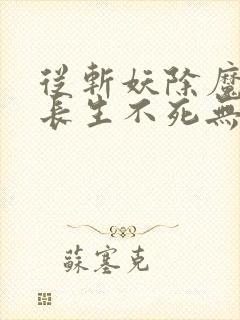 從斬妖除魔
長生不死無
蘇塞克